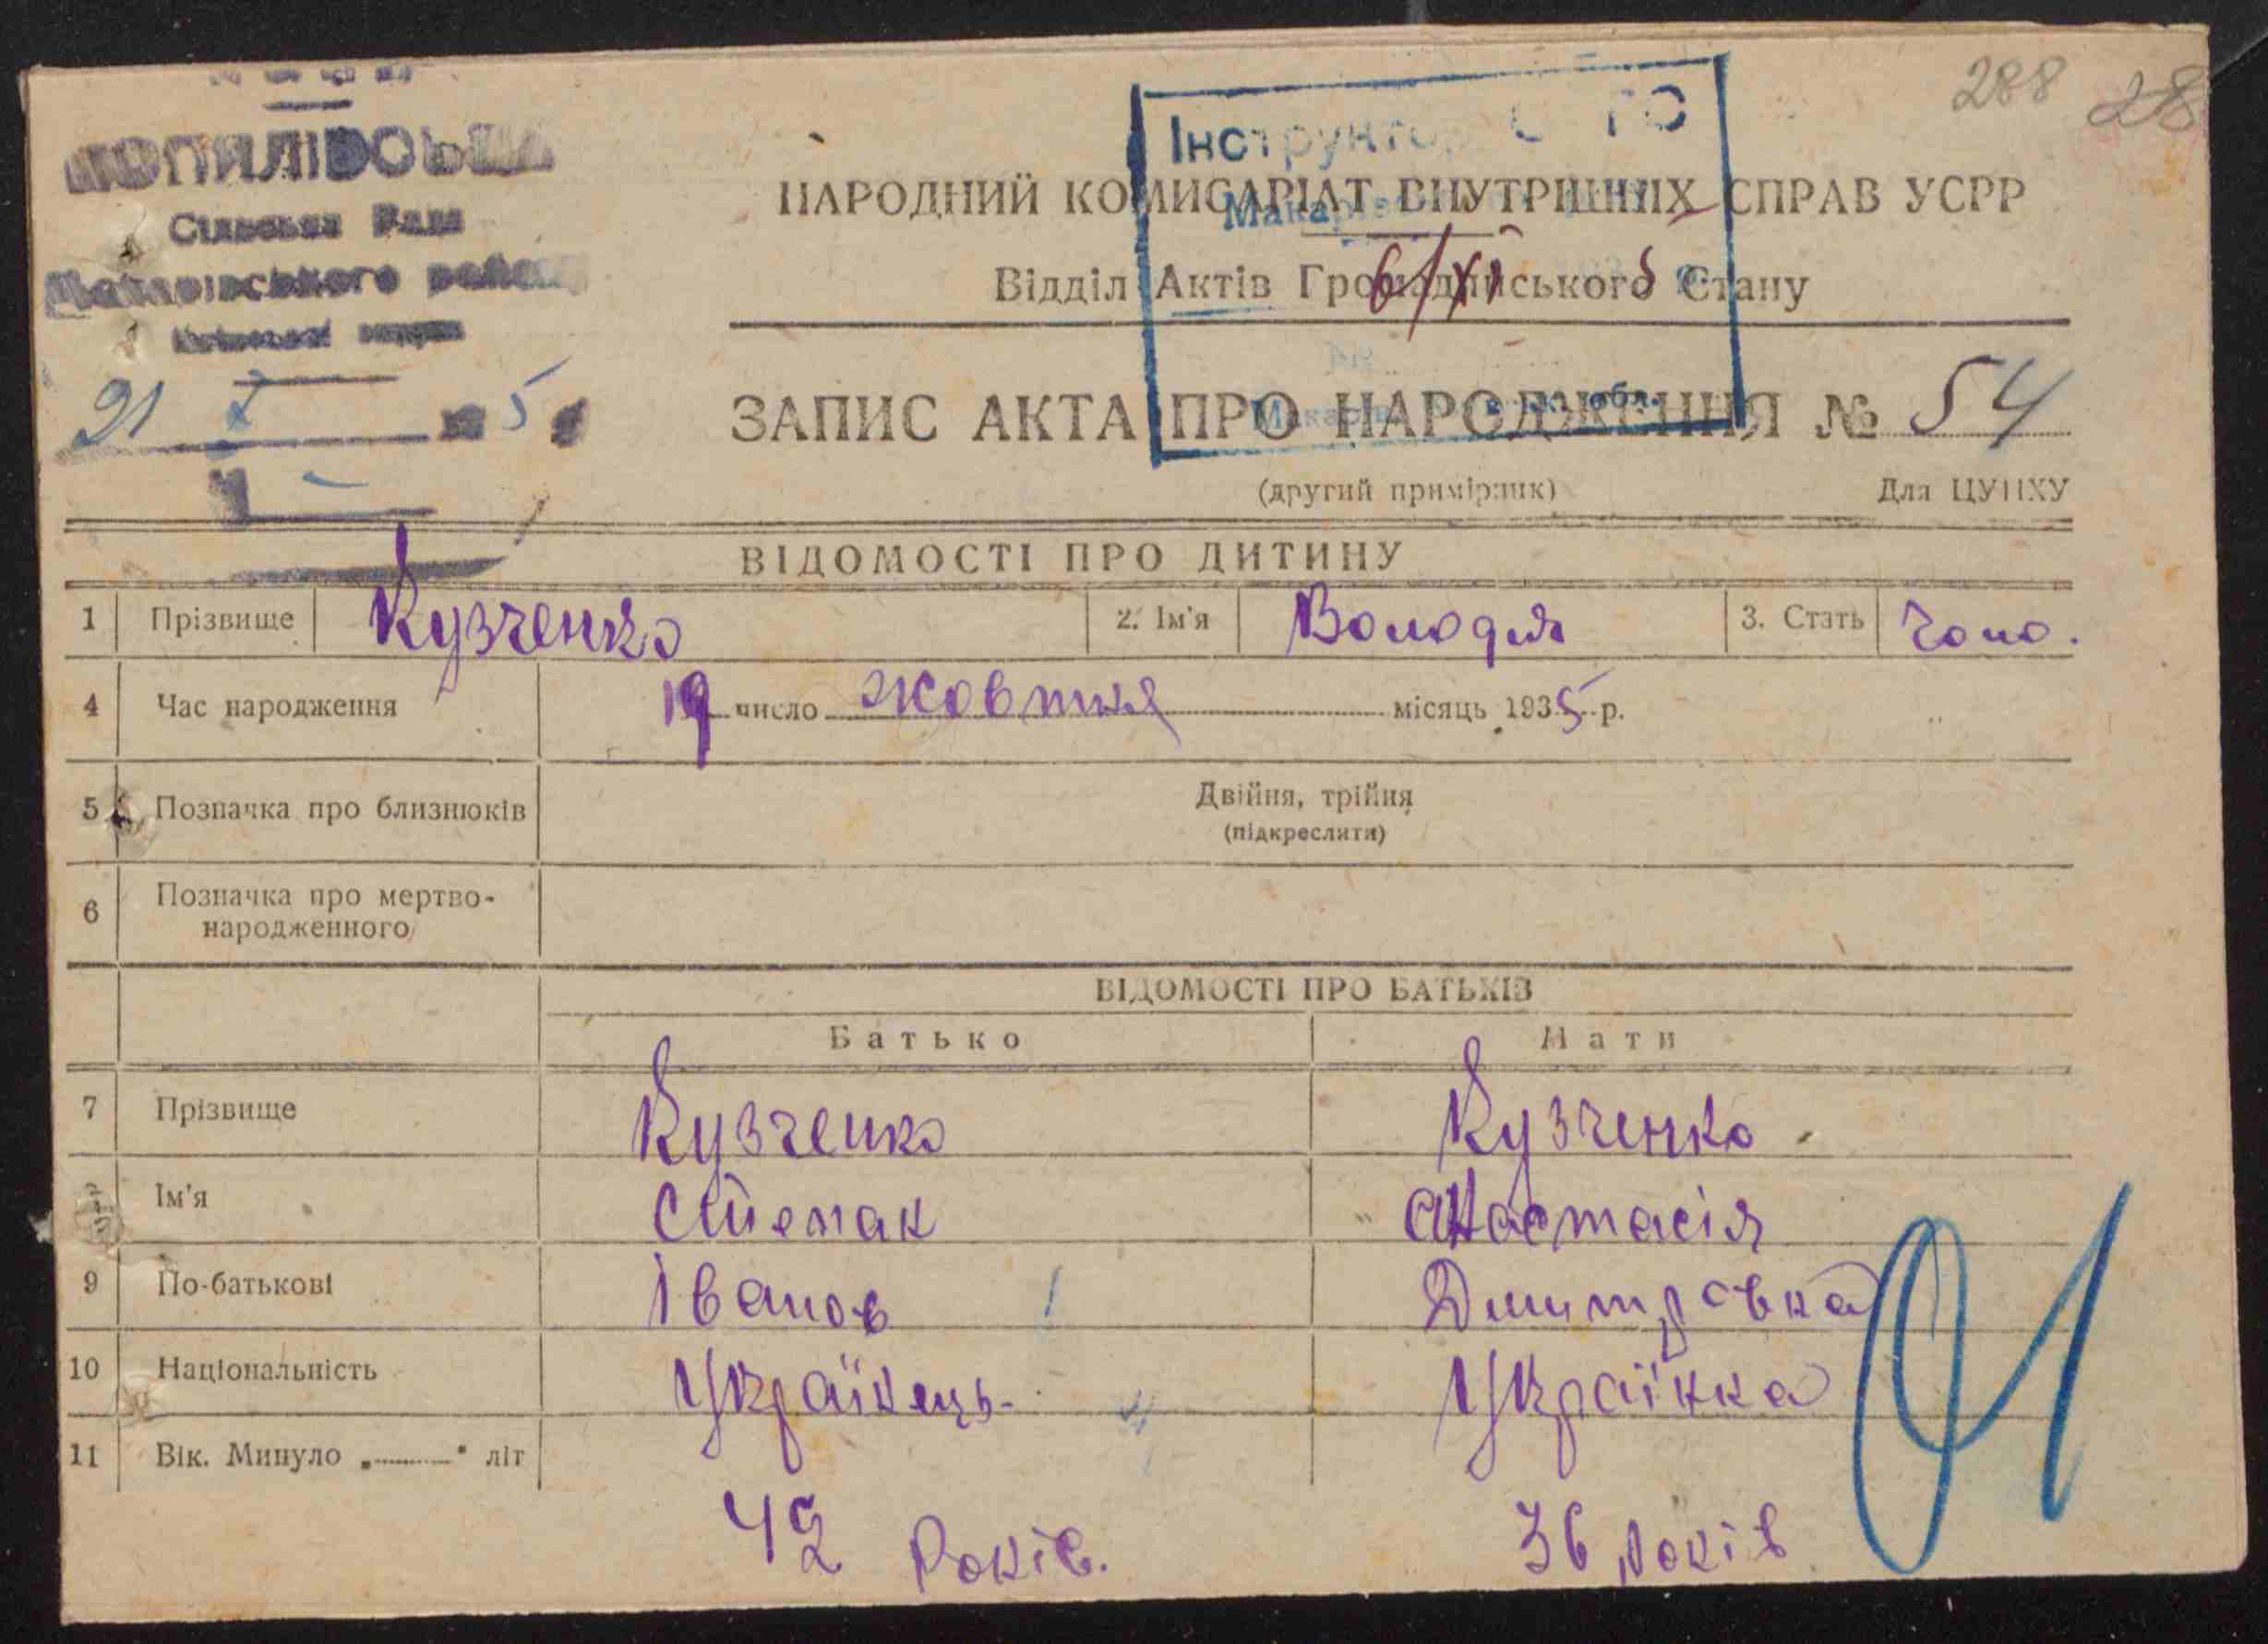 288 28
КОПИЛІВСЬКА
Сільська Рада
Макарівського району
21 X 5
Інструктор
Мака
6/XI 5
обл.
НАРОДНИЙ КОМИСАРІАТ ВНУТРІШНІХ СПРАВ УСРР
Відділ Актів Громадянського Стану
ЗАПИС АКТА ПРО НАРОДЖЕННЯ № 54
(другий примірник) Для ЦУНХУ
ВІДОМОСТІ ПРО ДИТИНУ
1 Прізвище Кузченко 2. Ім'я Володя 3. Стать чоло.
4 Час народження 19 число жовтня місяць 1935 р.
5 Позначка про близнюків Двійня, трійня
(підкреслити)
6 Позначка про мертво-
народженного
ВІДОМОСТІ ПРО БАТЬКІВ
Батько Мати
7 Прізвище Кузченко Кузченко
Ім'я Анастасія
9 По-батькові Іванов Дмитровна
10 Національність Українець Українка
11 Вік. Минуло „ “ літ
42 Років. 36 років